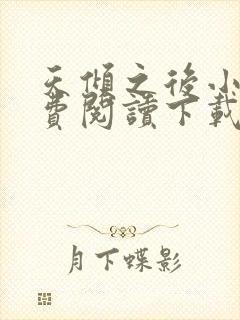 天傾之後小
費閱讀下載
月下蝶影